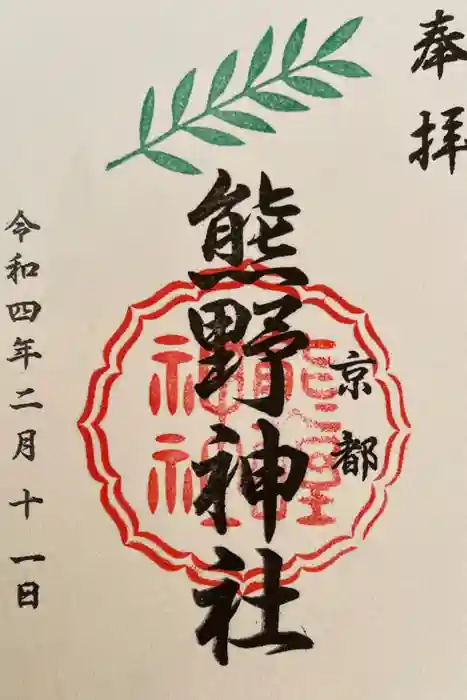 奉拝
京都
熊野神社
熊野
神社
令和四年二月十一日